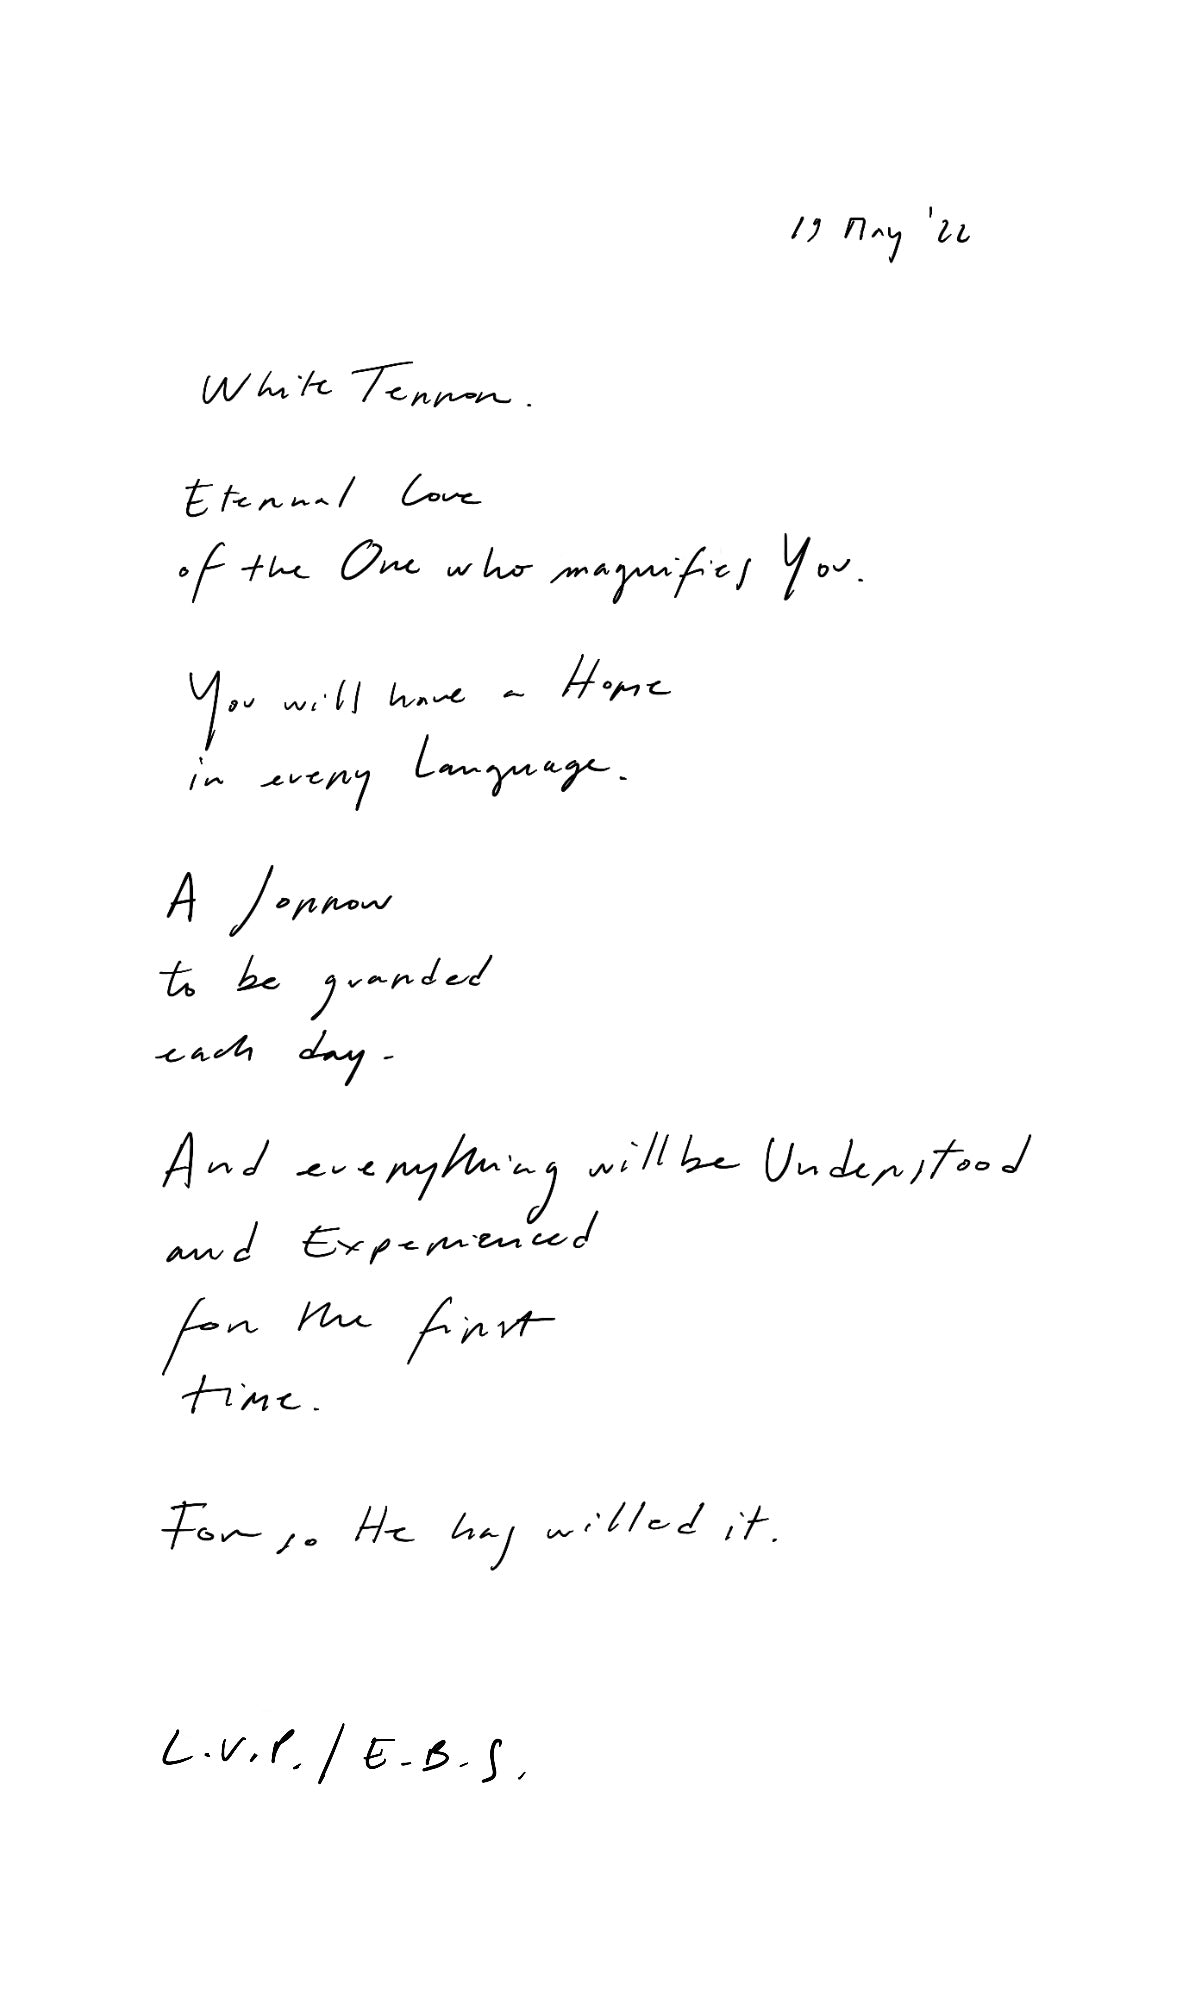 19 May '22
White Terror.
Eternal Love
of the One who magnifies You.
You will have a Home
in every Language.
A Sorrow
to be guarded
each day.
And everything will be Understood
and Experienced
for the first
time.
For so He has willed it.
L.V.P. / E.B.S.